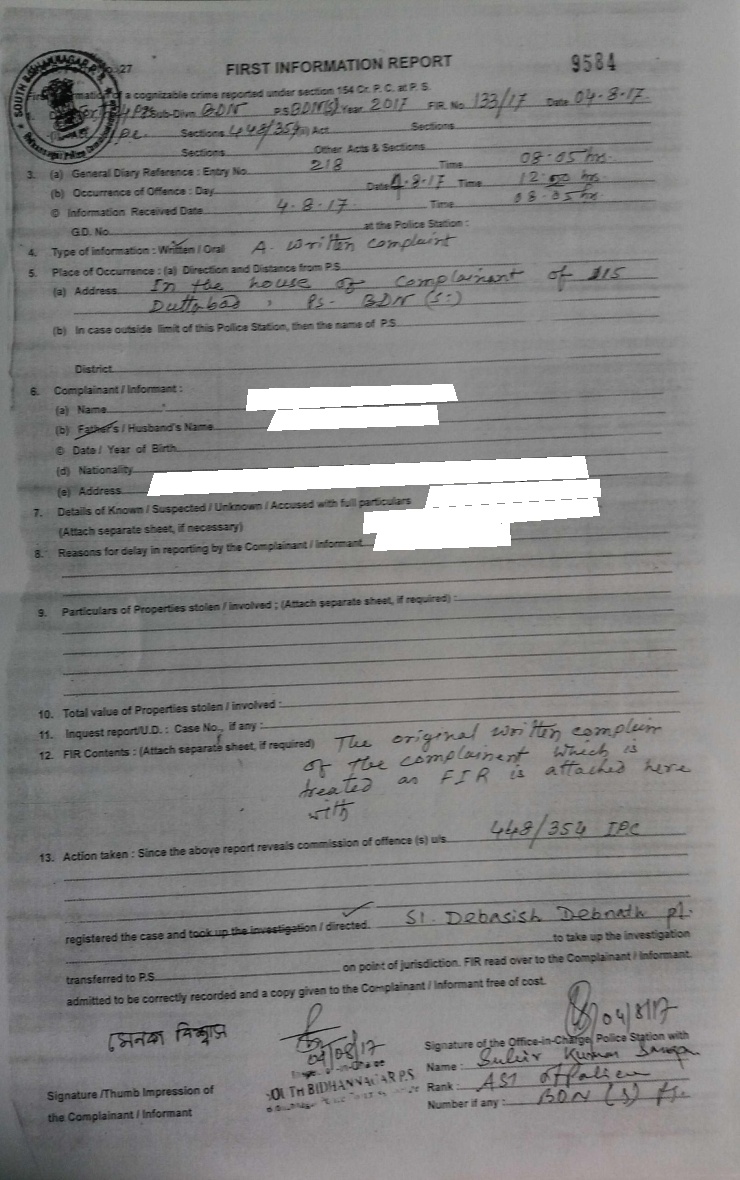 27
FIRST INFORMATION REPORT
9584
of a cognizable crime reported under section 154 Cr. P. C. at P. S.
Sub-Divn. BDN P.S. BDN(S) Year 2017 FIR. No. 133/17 Date 04-8-17
Sections 448/354 Act Sections
Sections Other Acts & Sections
3. (a) General Diary Reference : Entry No. 218 Time 08-05 hrs.
(b) Occurrence of Offence : Day Date 4.8-17 Time 12-00 hrs.
© Information Received Date 4-8-17. Time 08-05 hrs
G.D. No. at the Police Station :
4. Type of information : Written / Oral A. written complaint
5. Place of Occurrence : (a) Direction and Distance from P.S.
(a) Address In the house of Complainant of
Duttabad, Ps- BDN (S)
(b) In case outside limit of this Police Station, then the name of P.S.
District
6. Complainant / Informant :
(a) Name
(b) Father's / Husband's Name
© Date / Year of Birth
(d) Nationality
(e) Address
7. Details of Known / Suspected / Unknown / Accused with full particulars
(Attach separate sheet, if necessary)
8. Reasons for delay in reporting by the Complainant / Informant
9. Particulars of Properties stolen / involved ; (Attach separate sheet, if required) :
10. Total value of Properties stolen / involved :
11. Inquest report/U.D. : Case No., if any :
12. FIR Contents : (Attach separate sheet, if required) The original written complain
of the complainent which is
treated as FIR is attached here
with
13. Action taken : Since the above report reveals commission of offence (s) u/s 448/354 IPC
registered the case and took up the investigation / directed. SI. Debasish Debnath
to take up the investigation
transferred to P.S. on point of jurisdiction. FIR read over to the Complainant / Informant.
admitted to be correctly recorded and a copy given to the Complainant / Informant free of cost.
04/8/17
04/08/17
Signature of the Office-in-Charge, Police Station with
Name : Kumar
SOUTH BIDHANNAGAR P.S.
Rank : ASI of Police
Signature /Thumb Impression of
Number if any : BDN (S)
the Complainant / Informant